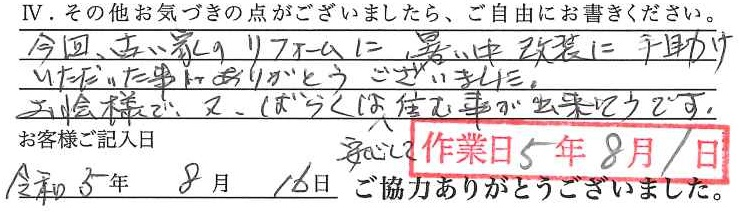 Ⅳ．その他お気づきの点がございましたら、ご自由にお書きください。
今回、古い家のリフォームに 暑い中 改装に 手助け
いただいた事に ありがとう ございました。
お陰様で、又、しばらくは 安心して 住む事が 出来そうです。
お客様ご記入日
作業日 5年 8月 1日
令和 5年 8月 16日 ご協力ありがとうございました。